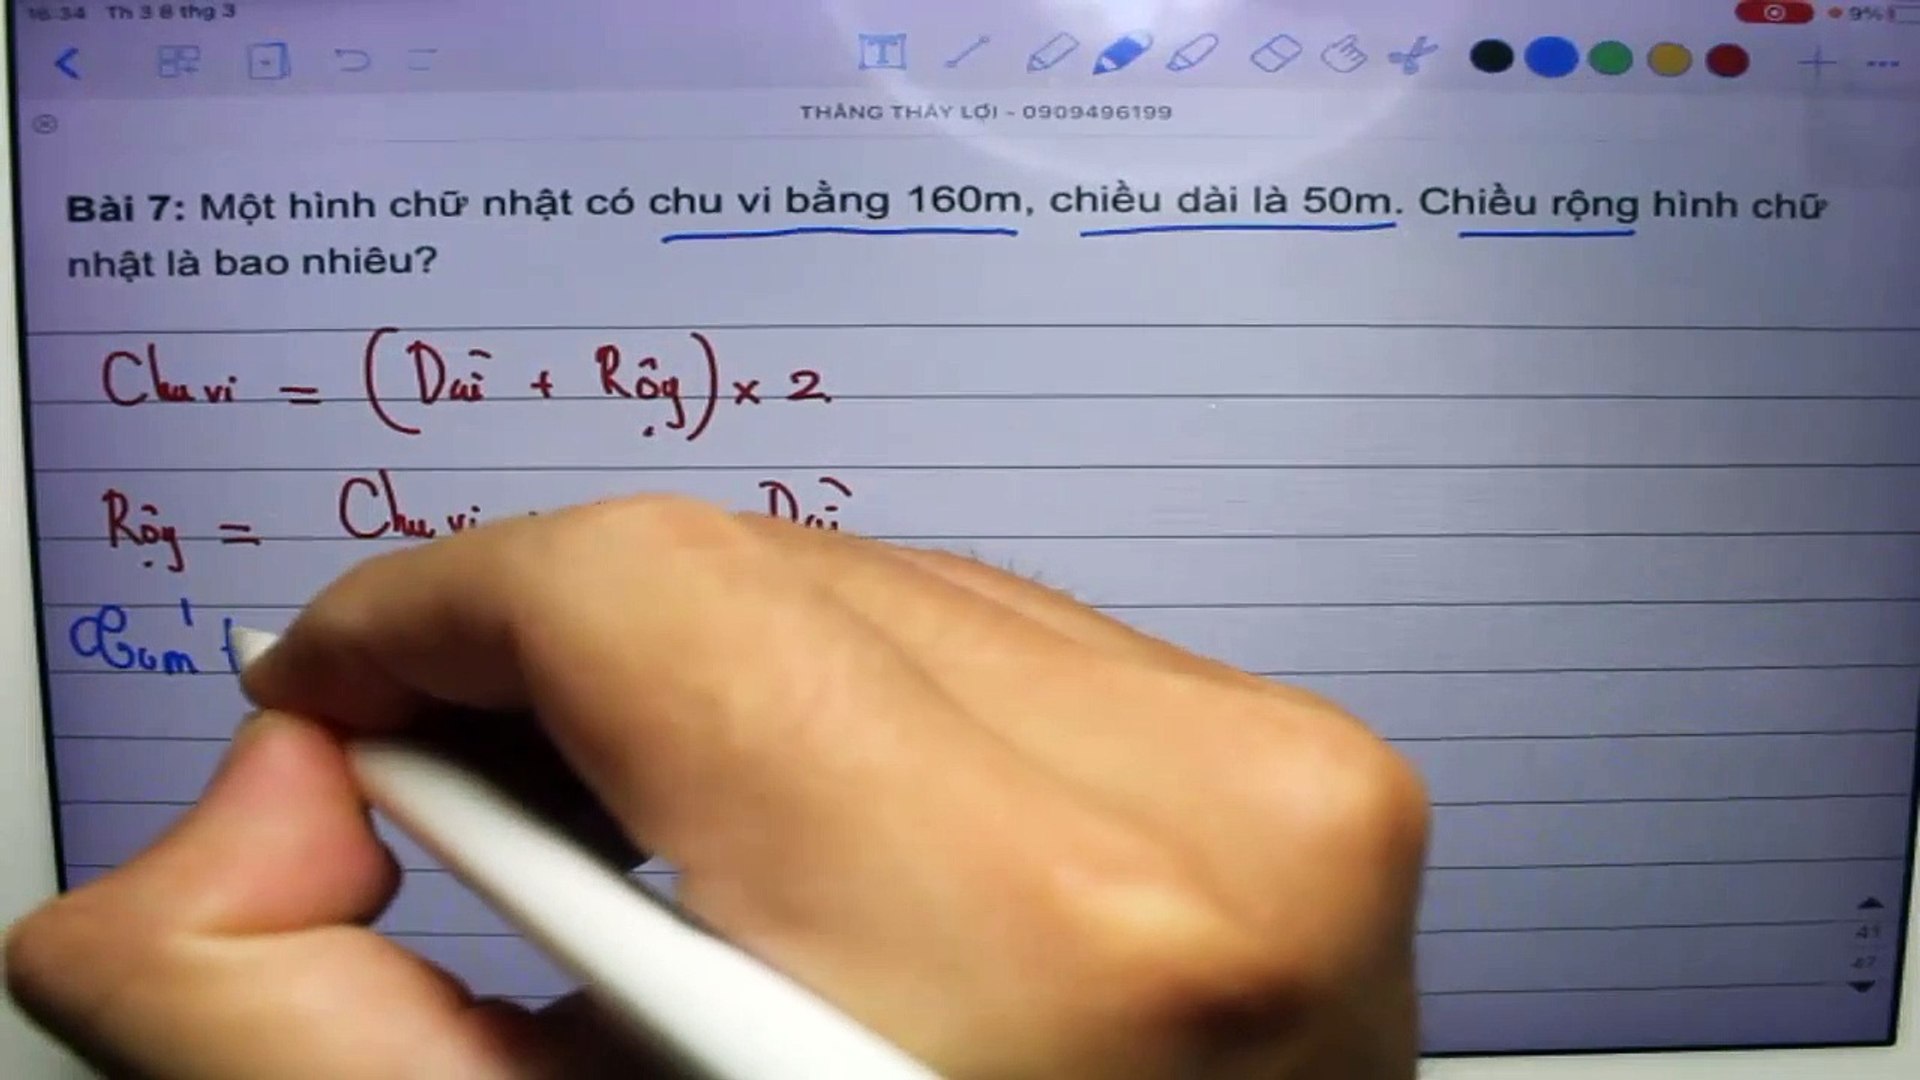 16:34 Th 3 8 thg 3
9%
T
THẦNG THẦY LỢI - 0909496199
Bài 7: Một hình chữ nhật có chu vi bằng 160m, chiều dài là 50m. Chiều rộng hình chữ
nhật là bao nhiêu?
Chu vi = (Dài + Rộg) × 2
Rộg = Chu vi Dài
41
47